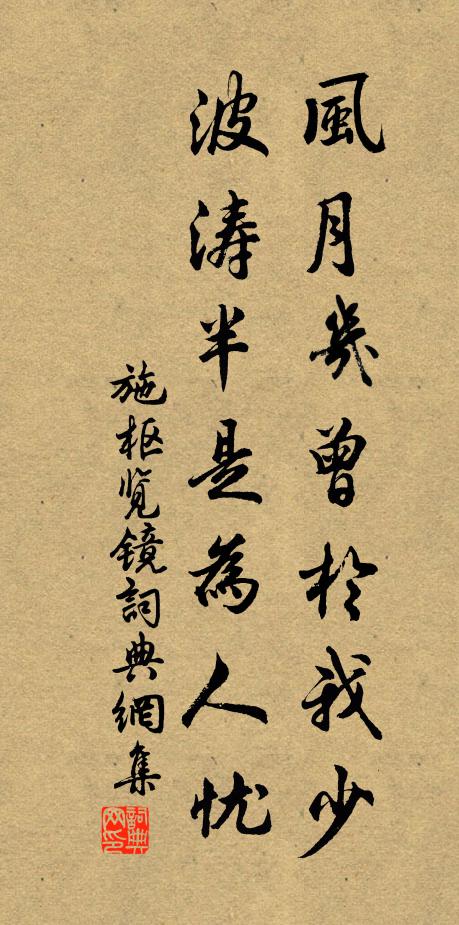 風月幾曾於我少
波濤半是為人忧
施枢览镜詞典網集
詞典网印